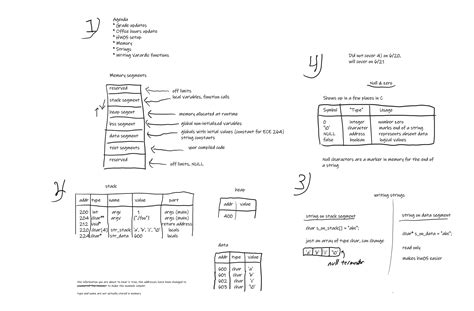 1)
Agenda
* Grade updates
* Office hours update
* HW05 setup
* Memory
* Strings
* Writing variadic functions
Memory segments
reserved
off limits
stack segment
local variables, function calls
heap segment
memory allocated at runtime
bss segment
global non-initialized variables
data segment
globals with initial values (constant for ECE 264)
string constants
text segments
your compiled code
reserved
off limits, NULL
4)
Did not cover 4) on 6/20,
will cover 6/21
Null & zero
Shows up in a few places in C
Symbol "Type" Usage
0 integer number zero
'\0' character marks end of a string
NULL address represents absent data
false boolean logical values
Null characters are a marker in memory for the end of
a string
2)
stack
addr type name value part
200 int argc 1 args (main)
204 char** argv {"/foo"} args (main)
212 void* return address
220 char[4] str_stack 'a', 'b', 'c', '\0' locals
224 char* str_data 600 locals
heap
addr value
A00
data
addr type value
600 char 'a'
601 char 'b'
602 char 'c'
603 char '\0'
type and name are not actually stored in memory
3)
writing strings:
string on stack segment
char s_on_stack[] = "abc";
just an array of type char, can change
'a' 'b' 'c' '\0'
null terminator
string on data segment
char* s_on_data = "abc";
read only
makes HW05 easier